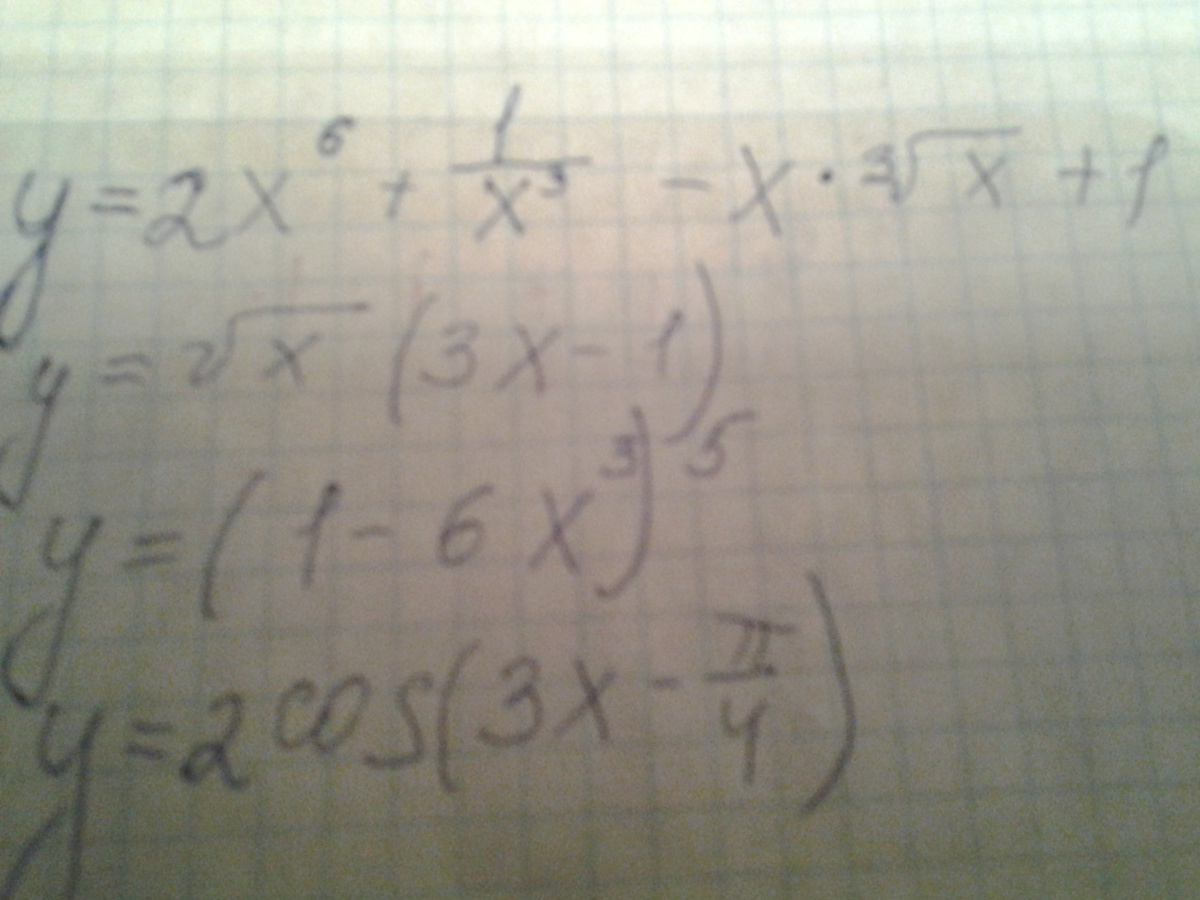 y = 2x⁶ + 1/x³ - x · ³√x + 1
y = √x (3x - 1)
y = (1 - 6x³)⁵
y = 2cos(3x - π/4)